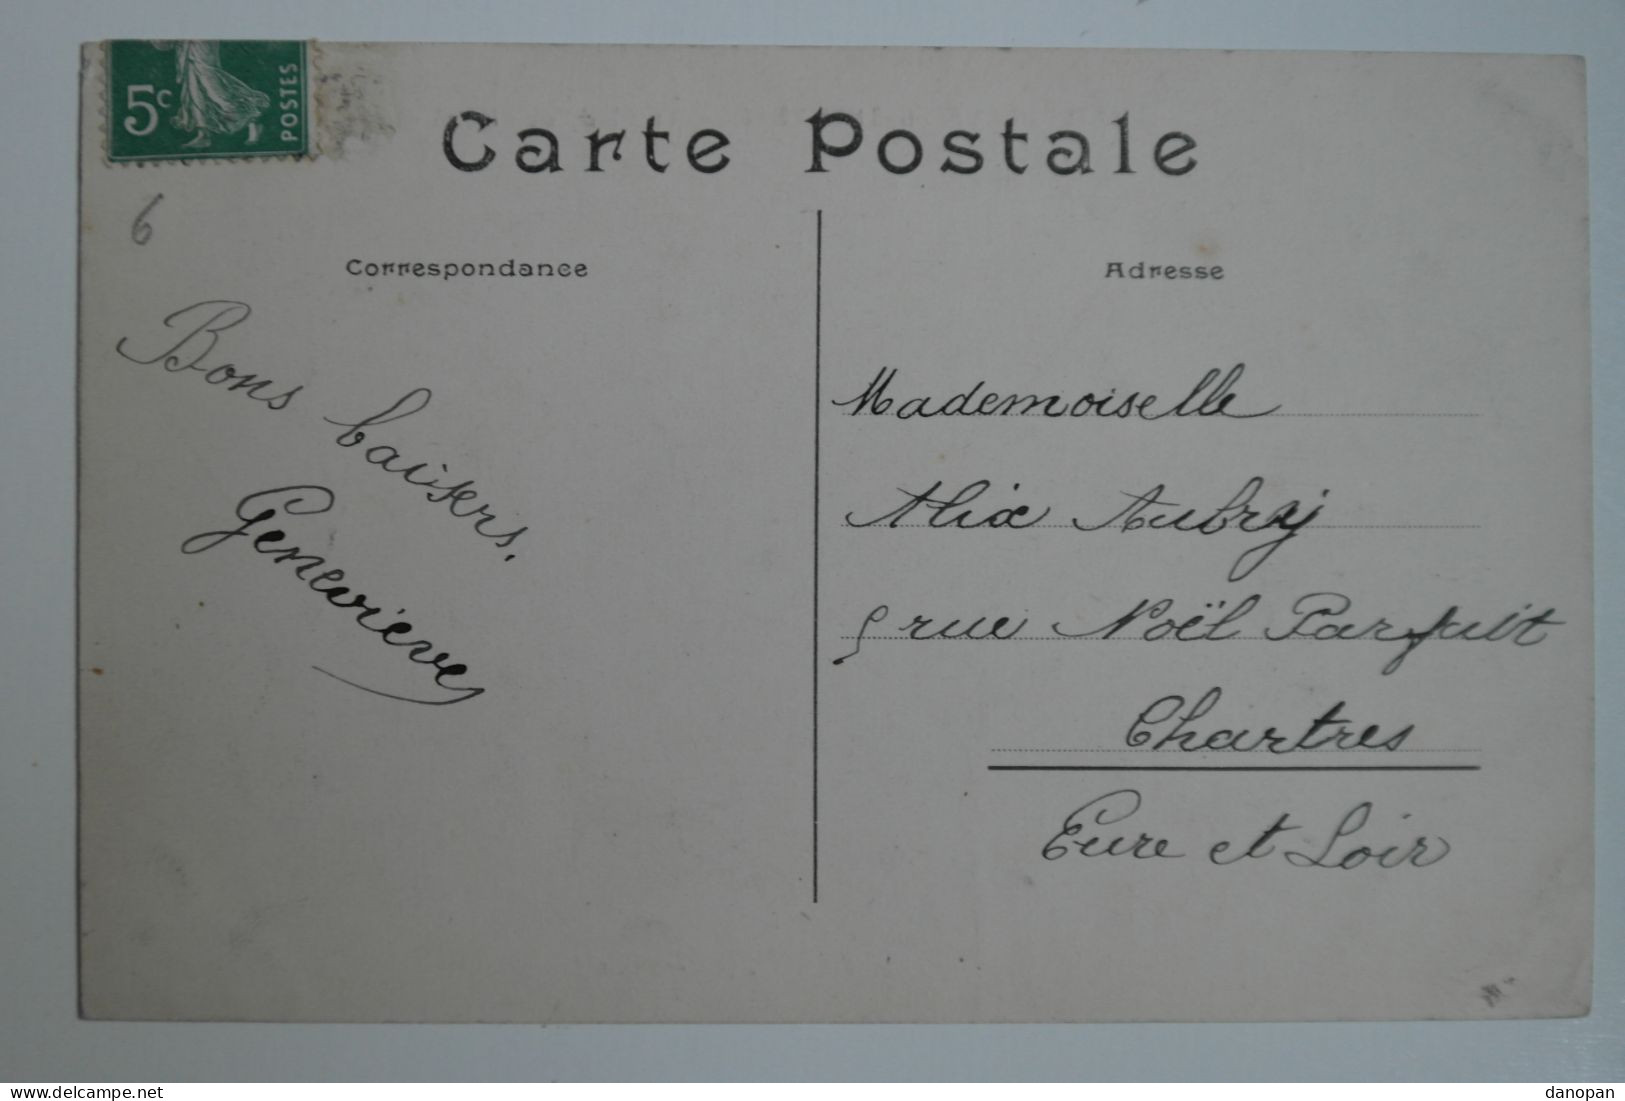 5c
POSTES
Carte Postale
6
Correspondance
Bons baisers.
Geneviève
Adresse
Mademoiselle
Alix Aubry
5 rue Noël Parfait
Chartres
Eure et Loir
delcampe.net
danopan